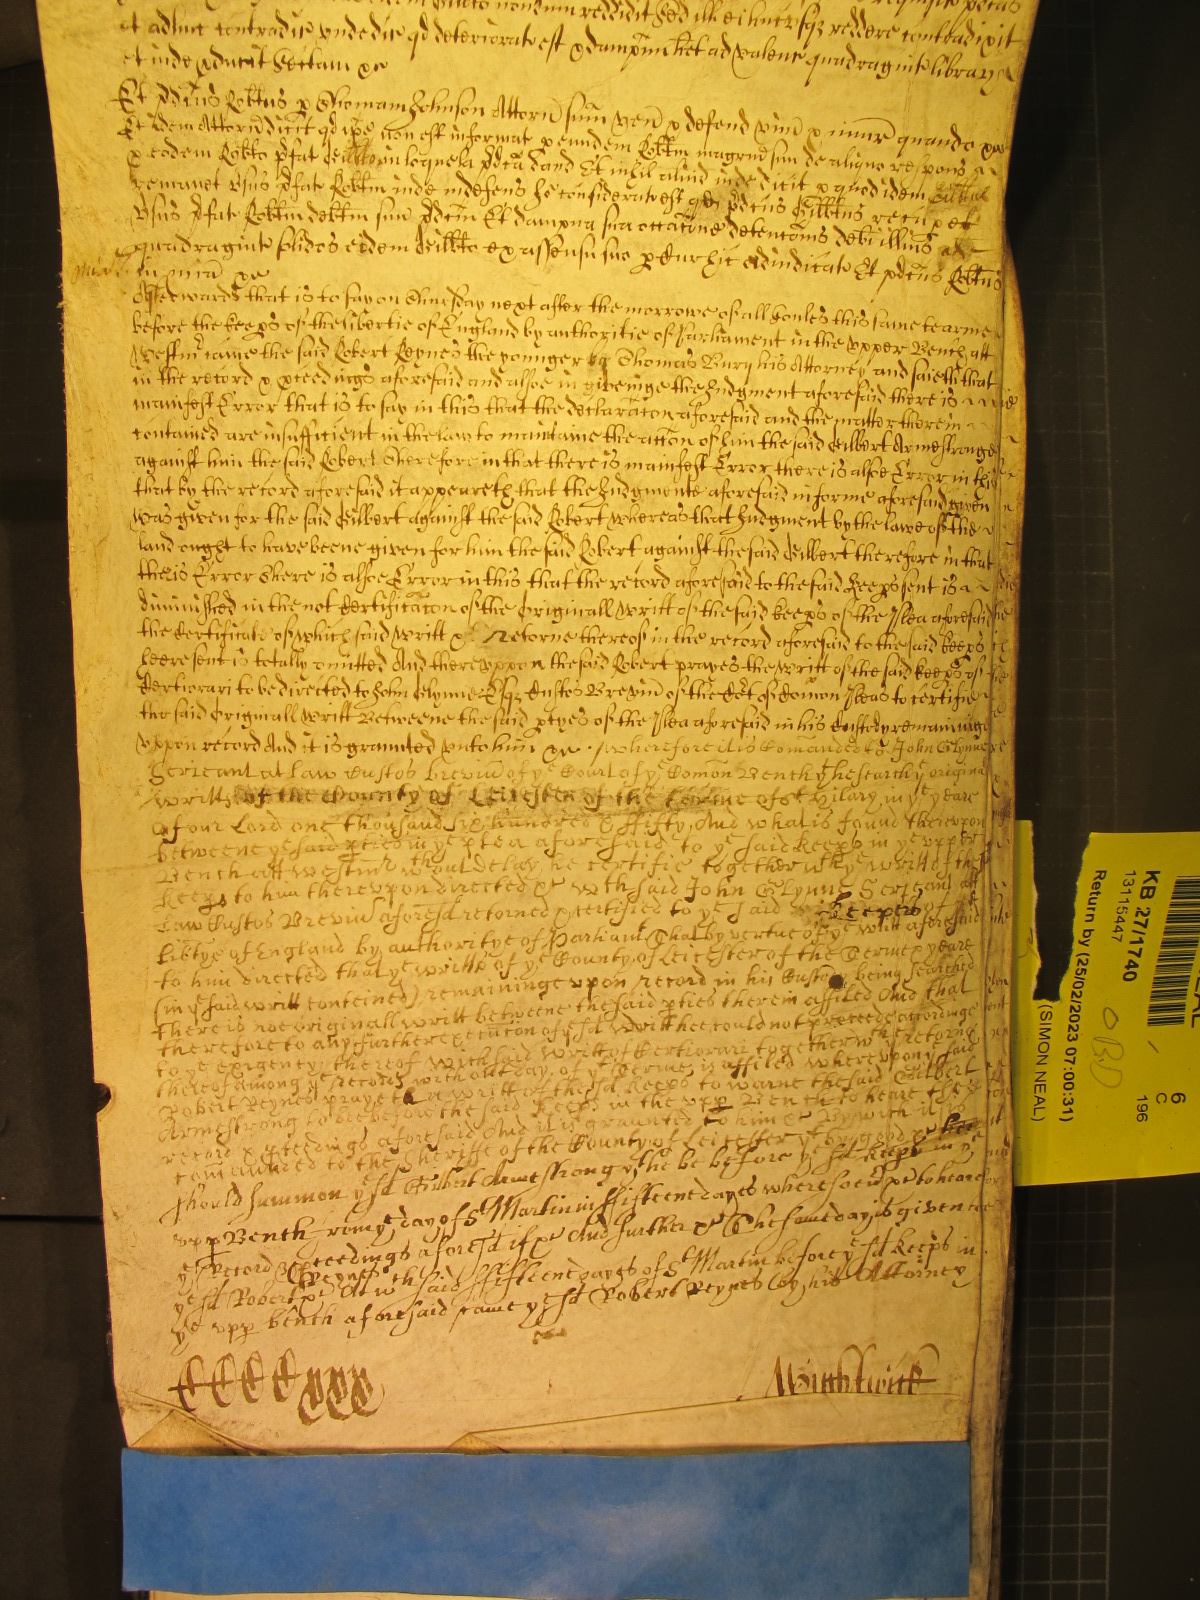 et adhuc contradic unde dic qd deteriorat est & dampnu het ad valenc quadraginta librar
et inde producit Sectam &c
Et pdcus Robtus p Thomam Johnson Attorn suu ven & defend vim & iniur quando &c
Et idem Attorn dicit qd ipe non est informat p eundem Robtm magrm suu de aliquo respons
p eodem Robto pfat Gilbto in loquela pdca dand Et nihil aliud inde dicit p quod idem Gilbtus
remanet vsus pfat Robtm inde indefens Io considerat est qd pdcus Gilbtus recupet
vsus pfat Robtm debtm suu pdcm Et dampna sua occacone detencois debi illius ad
quadragint solidos eidem Gilbto ex assensu suo p Cur hic adiudicat Et pdcus Robtus
in mia &c
Afterwards that is to say on Thursday next after the morrowe of all Soules this same tearme
before the keeps of the libertie of England by authoritie of Parliament in the vpper Bench att
Westmr came the said Robert Reynes the younger by Thomas Bury his Attorney and saieth that
in the record & pceedings aforesaid and alsoe in giveinge the Judgment aforesaid there is
manifest Error that is to say in this that the declaracon aforesaid and the matter therein
contained are insufficient in the law to maintaine the accon of him the said Gilbert Armestronge
against him the said Robert Therefore in that there is manifest Error there is alsoe Error in this
that by the record aforesaid it appeareth that the Judgmente aforesaid in forme aforesaid given
was given for the said Gilbert against the said Robert whereas that Judgment by the lawe of the
land ought to have beene given for him the said Robert against the said Gilbert therefore in that
there is Error There is alsoe Error in this that the record aforesaid to the said keeps sent is
diminished in the not Certificacon of the Originall writt of the said keeps of the Plea aforesaid
the Certificate of which said writt & Retorne thereof in the record aforesaid to the said keeps
heere sent is totally omitted And therevppon the said Robert prayes the writt of the said keeps of
Certiorari to be directed to John Glynne Esqr Custos Brevium of the Cort of Comon Pleas to certifie
the said Originall writt Betweene the said ptyes of the Plea aforesaid in his Custody remaininge
vppon record And it is graunted vnto him &c wherefore it is Comanded to John Glynne
Serieant at Law Custos breviu of ye Court of ye Comon Bench yt he search ye originall
writts of the County of Leicester of the Terme of St Hilary in ye yeare
of our Lord one thousand six hundred & ffifty And what is found therevpon
betweene ye said pties in ye plea aforesaid to ye said keeps in ye vpper
Bench att Westmr wthout delay he certifie together wth ye writt of the sd
keeps to him therevpon directed &c wch said John Glynne Serieant att
Law Custos Breviu aforesd retorned & certified to ye said keepers of ye
Libtye of England by authoritye of Parliamt That by vertue of ye writt aforesaid
to him directed that ye writts of ye County of Leicester of the Terme & yeare
(in ye said writt conteined) remaininge vpon record in his Custody being searched
There is noe originall writt betweene the said pties therein affiled And that
therefore to any further execucon of ye sd writt hee could not proceede accordinge
to ye exigency thereof Wich said writt of Certiorari together wth the retorne
thereof among ye records without day of ye Terme is affiled wherevpon ye said
Robert Reynes prayeth a writt of the sd keeps to warne the said Gilbert
Armestrong to bee before the said keeps in the vpp Bench to heare the
record & pceedings aforesaid And it is graunted to him &c By wch it is
comaunded to the Sheriffe of the County of Leicester yt by good &c hee
should summon ye sd Gilbert Armestrong yt he be before ye sd keeps in ye
vpp Bench from ye day of St Martin in ffifteene dayes wheresoeu &c to heare
ye record & pceedings aforesd if &c And further &c The same day is given to
ye sd Robert Reynes &c At wch said ffifteene dayes of St Martin before ye sd keeps in
ye vpp bench aforesaid came ye sd Robert Reynes by his Attorney
Wightwick
KB 27/1740
13115447
Return by (25/02/2023 07:00:31)
(SIMON NEAL)
6
C
196